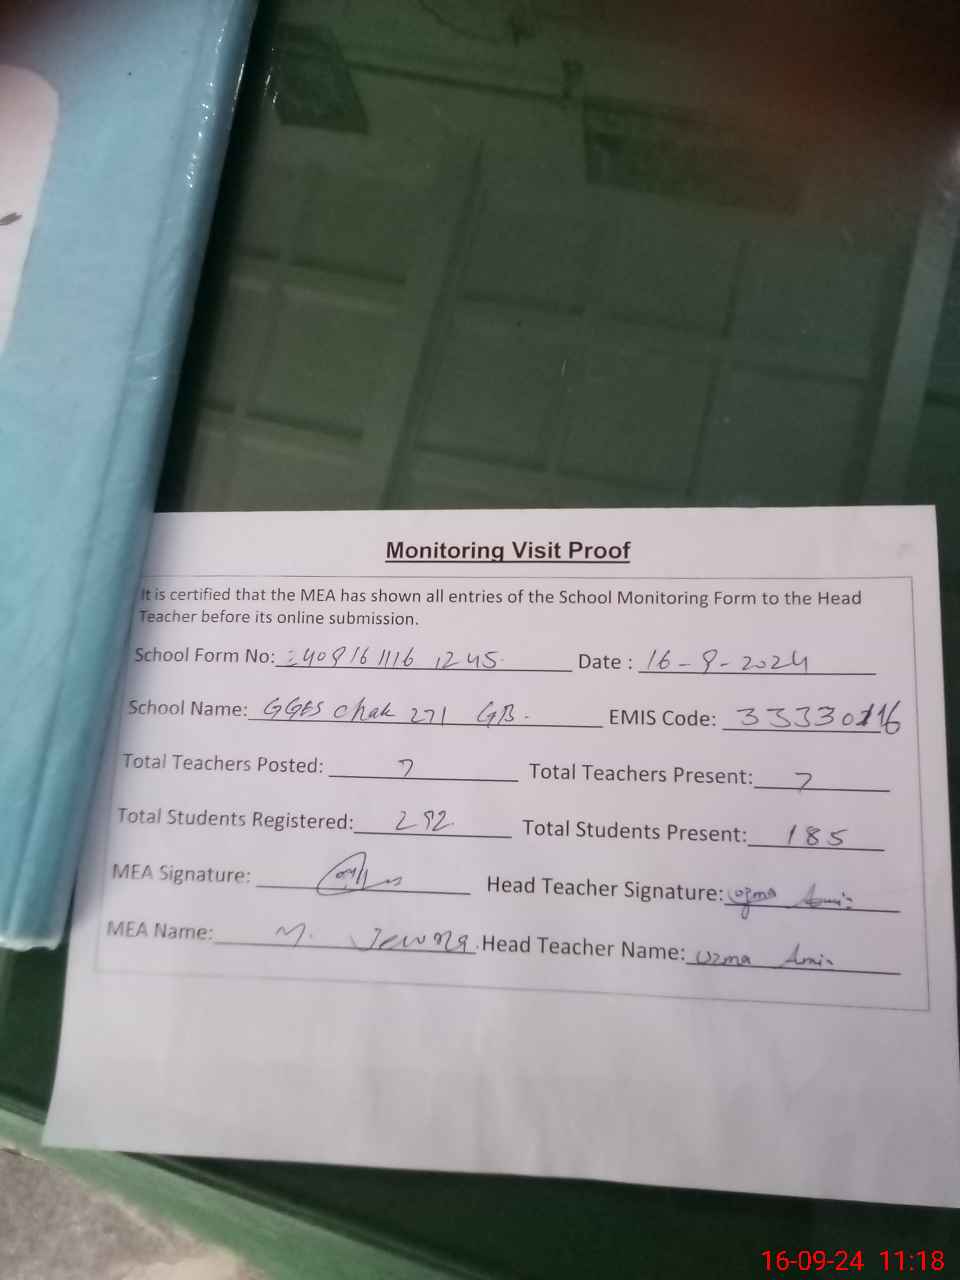 Monitoring Visit Proof
It is certified that the MEA has shown all entries of the School Monitoring Form to the Head
Teacher before its online submission.
School Form No: 2409161116 1245 Date : 16-9-2024
School Name: GGES Chak 271 GB. EMIS Code: 33330116
Total Teachers Posted: 7 Total Teachers Present: 7
Total Students Registered: 292 Total Students Present: 185
MEA Signature: Head Teacher Signature: Uzma Amin
MEA Name: M. Head Teacher Name: Uzma Amin
16-09-24 11:18